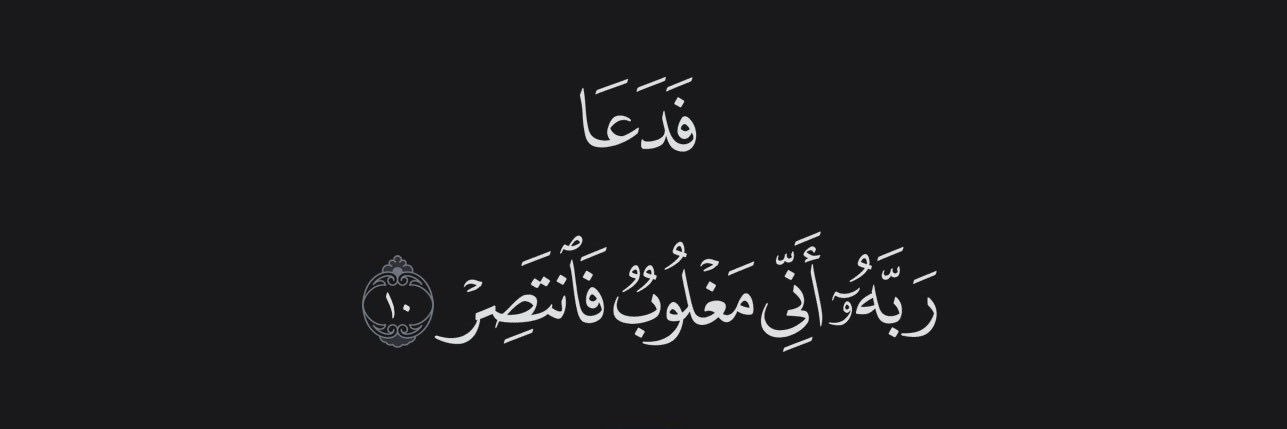 فَدَعَا
رَبَّهُۥٓ أَنِّى مَغْلُوبٌ فَٱنتَصِرْ ١٠